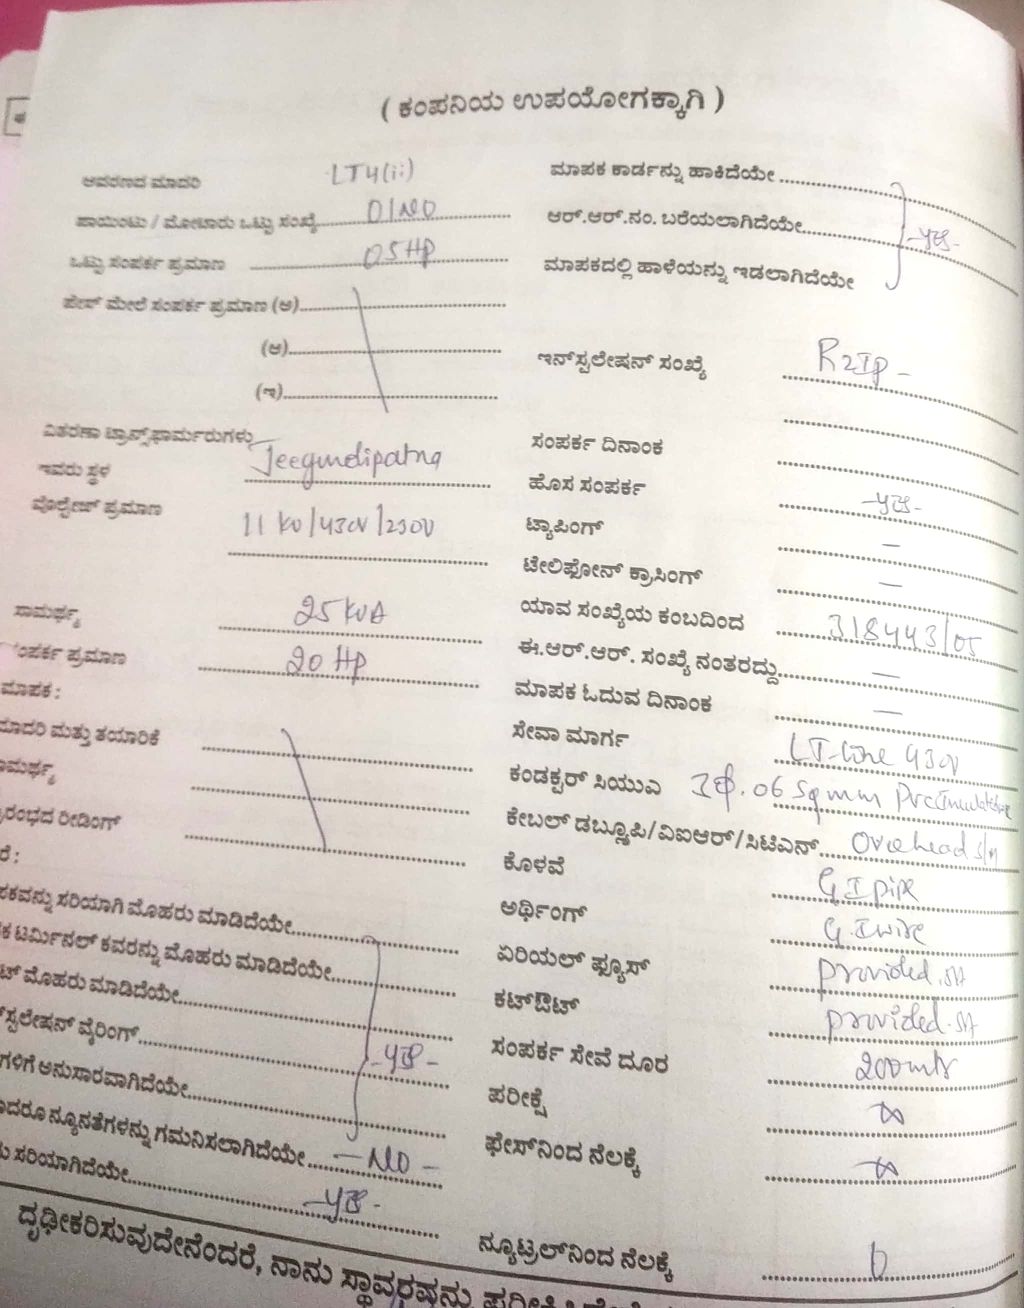 ( ಕಂಪನಿಯ ಉಪಯೋಗಕ್ಕಾಗಿ )
ಆವರಣದ ಮಾದರಿ LT4(ii)
ಪಾಯಿಂಟು / ಮೋಟಾರು ಒಟ್ಟು ಸಂಖ್ಯೆ 01 NO
ಒಟ್ಟು ಸಂಪರ್ಕ ಪ್ರಮಾಣ 05 HP
ಪೇಸ್ ಮೇಲೆ ಸಂಪರ್ಕ ಪ್ರಮಾಣ (ಅ)
(ಆ)
(ಇ)
ವಿತರಣಾ ಟ್ರಾನ್ಸ್‌ಫಾರ್ಮರುಗಳು
ಇವರು ಸ್ಥಳ Jeegundipatna
ವೋಲ್ಟೇಜ್ ಪ್ರಮಾಣ 11 KV/430V/230V
ಸಾಮರ್ಥ್ಯ 25 KVA
ಸಂಪರ್ಕ ಪ್ರಮಾಣ 20 HP
ಮಾಪಕ :
ಮಾದರಿ ಮತ್ತು ತಯಾರಿಕೆ
ಸಾಮರ್ಥ್ಯ
ರಂಭದ ರೀಡಿಂಗ್
ರೆ :
ಪಕವನ್ನು ಸರಿಯಾಗಿ ಮೊಹರು ಮಾಡಿದೆಯೇ
ಕ ಟರ್ಮಿನಲ್ ಕವರನ್ನು ಮೊಹರು ಮಾಡಿದೆಯೇ
ಟ್ ಮೊಹರು ಮಾಡಿದೆಯೇ
ಸ್ಪಲೇಷನ್ ವೈರಿಂಗ್ -yes-
ಗಳಿಗೆ ಅನುಸಾರವಾಗಿದೆಯೇ
ದರೂ ನ್ಯೂನತೆಗಳನ್ನು ಗಮನಿಸಲಾಗಿದೆಯೇ -NO-
ಸರಿಯಾಗಿದೆಯೇ -yes-
ಮಾಪಕ ಕಾರ್ಡನ್ನು ಹಾಕಿದೆಯೇ
ಆರ್.ಆರ್.ನಂ. ಬರೆಯಲಾಗಿದೆಯೇ -yes-
ಮಾಪಕದಲ್ಲಿ ಹಾಳೆಯನ್ನು ಇಡಲಾಗಿದೆಯೇ
ಇನ್‌ಸ್ಪಲೇಷನ್ ಸಂಖ್ಯೆ R2IP -
ಸಂಪರ್ಕ ದಿನಾಂಕ
ಹೊಸ ಸಂಪರ್ಕ -yes-
ಟ್ಯಾಪಿಂಗ್ —
ಟೇಲಿಫೋನ್ ಕ್ರಾಸಿಂಗ್ —
ಯಾವ ಸಂಖ್ಯೆಯ ಕಂಬದಿಂದ 318443/05
ಈ.ಆರ್.ಆರ್. ಸಂಖ್ಯೆ ನಂತರದ್ದು —
ಮಾಪಕ ಓದುವ ದಿನಾಂಕ —
ಸೇವಾ ಮಾರ್ಗ LT-Line 430V
ಕಂಡಕ್ಟರ್ ಸಿಯುವಿ 3ф. 06 Sqmm PVC
ಕೇಬಲ್ ಡಬ್ಲೂಪಿ/ವಿಐಆರ್/ಸಿಟಿಎಸ್ Overhead
ಕೊಳವೆ G.I pipe
ಅರ್ಥಿಂಗ್ G.I wire
ಏರಿಯಲ್ ಫ್ಯೂಸ್ provided.
ಕಟ್‌ಔಟ್ provided.
ಸಂಪರ್ಕ ಸೇವೆ ದೂರ 200 mtr
ಪರೀಕ್ಷೆ
ಫೇಸ್‌ನಿಂದ ನೆಲಕ್ಕೆ
ನ್ಯೂಟ್ರಲ್‌ನಿಂದ ನೆಲಕ್ಕೆ
ದೃಢೀಕರಿಸುವುದೇನೆಂದರೆ, ನಾನು ಸ್ಥಾವರವನ್ನು